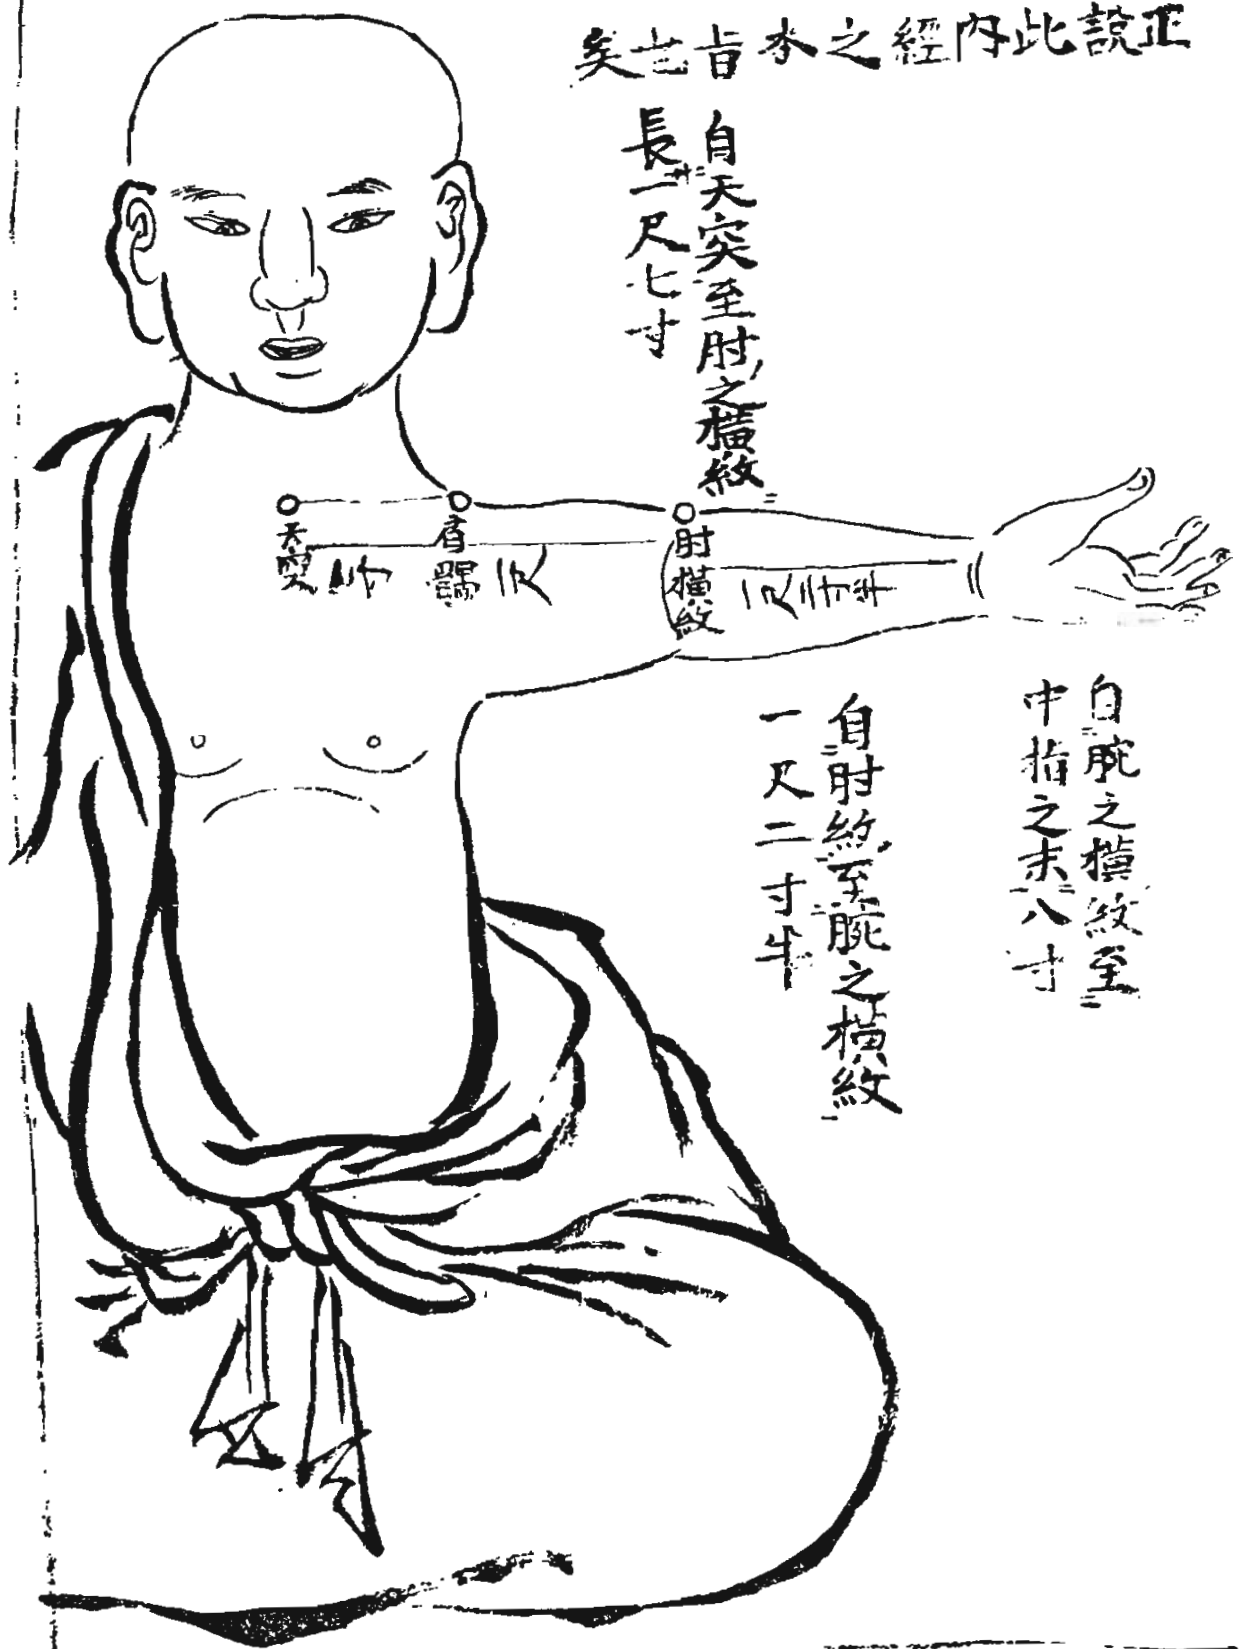 正說此內經之本旨也矣
自天突至肘之橫紋
長一尺七寸
天突
肩髃
一尺
肘橫紋
一尺二寸半
自腕之橫紋至
中指之末八寸
自肘紋至腕之橫紋
一尺二寸半